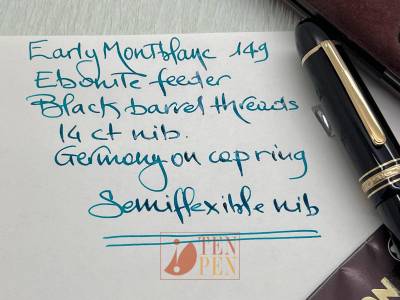 Early Montblanc 149
Ebonite feeder
Black barrel threads
14 ct nib.
Germany on cap ring
Semiflexible nib
TEN
PEN